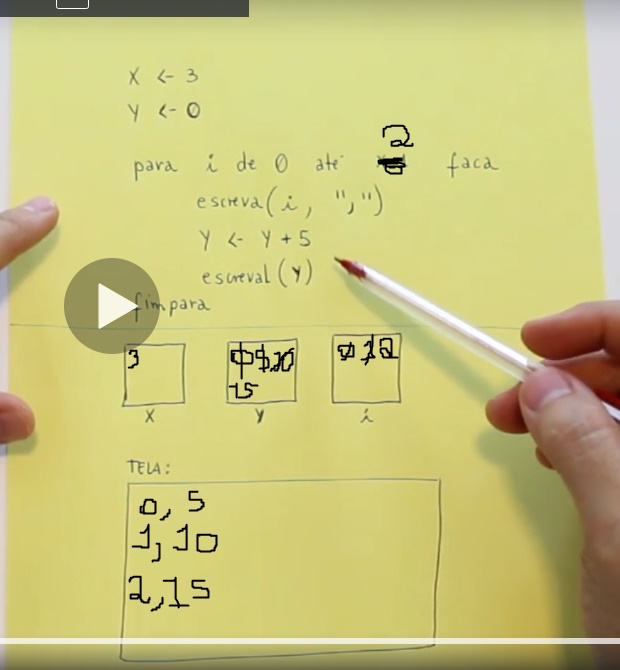 X <- 3
Y <- 0
para i de 0 até 2 faca
escreva(i, ",")
Y <- Y + 5
escreval(Y)
fimpara
3
0 5 10
15
0 1 2
X
Y
i
TELA:
0, 5
1, 10
2, 15